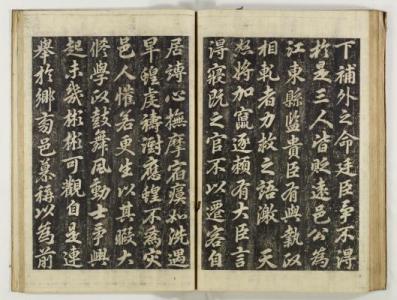 下補外之命廷臣爭不得
於是三人皆貶遠邑公為
江東縣監貴臣有與執政
相軋者力救之語激天
怒將加竄逐賴有大臣言
得寢既之官不以遷客自
居溥心撫摩宿瘼如洗遇
旱蝗虔禱澍應蝗不為灾
邑人懽若更生以其暇大
修學以鼓舞風動士爭興
起未幾彬彬可觀自是連
舉於鄉旁邑慕稱以為前